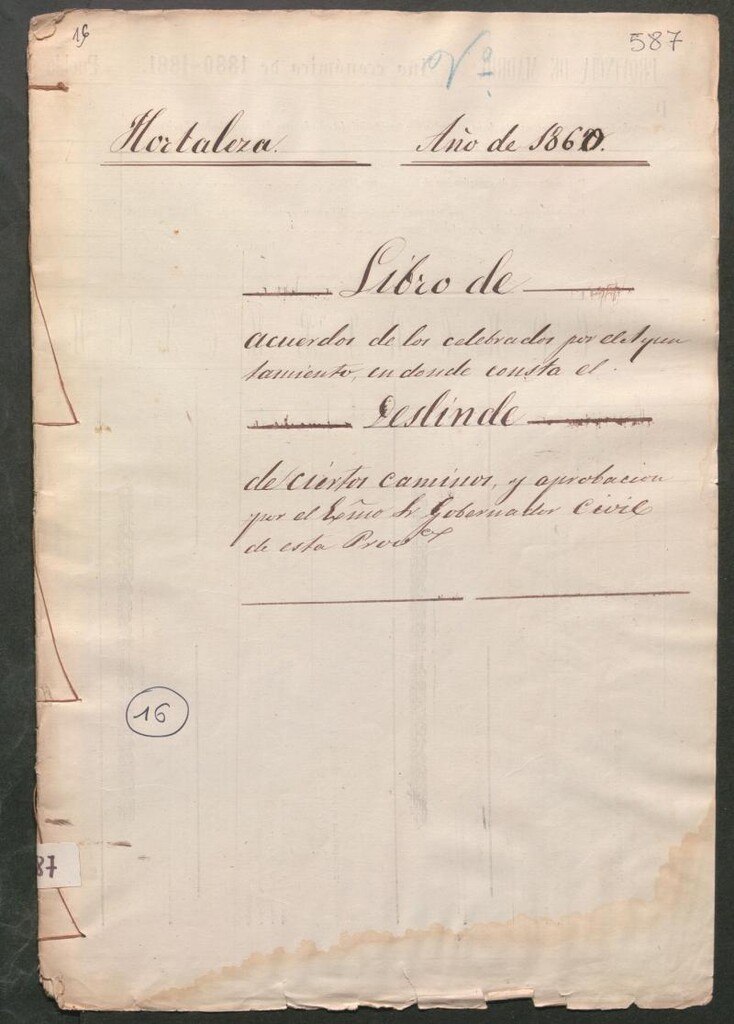 16
587
Nº
PROVINCIA DE MADRID. Año económico de 1880-1881.
Hortaleza. Año de 1860.
Libro de
acuerdos de los celebrados por el Ayun
tamiento, en donde consta el
Deslinde
de ciertos caminos, y aprobacion
por el Exmo Sr Gobernador Civil
de esta Provª
16
87